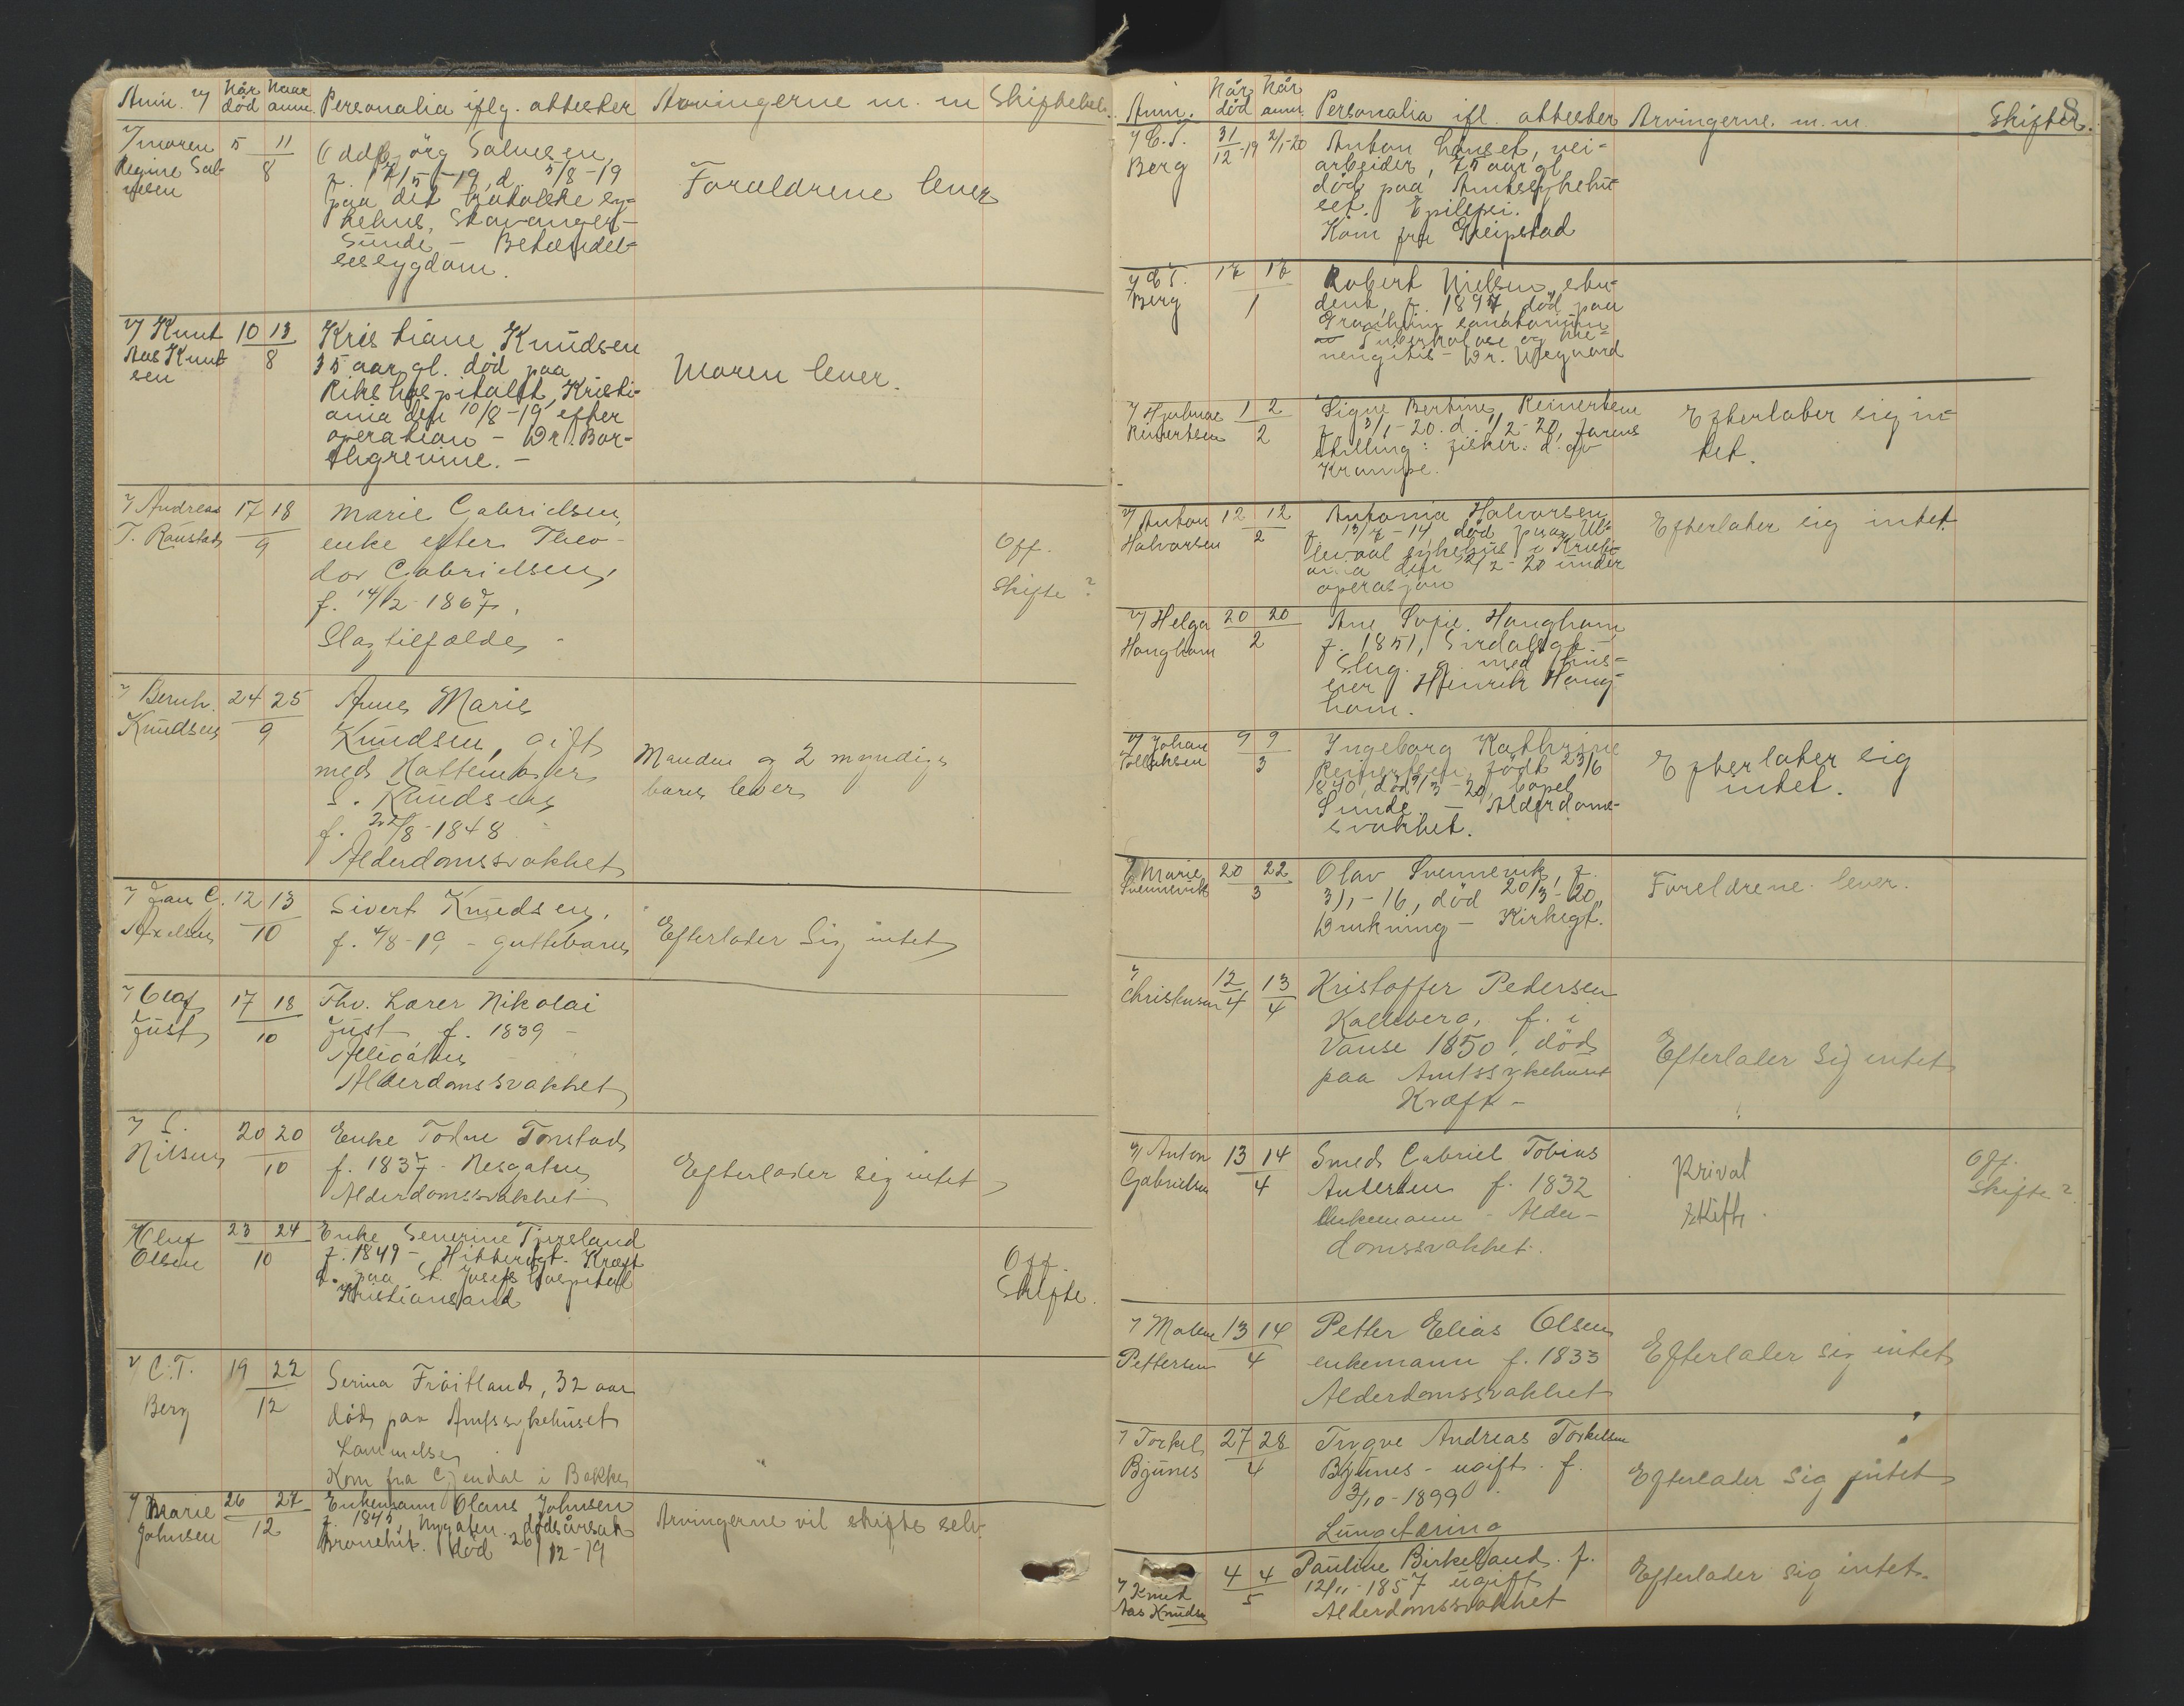 Anm. v/ Når død Naar anm. Personalia iflg. attester Arvingerne m. m Skiftebeh.
v/ Maren 5 11
Regine Sal- 8
vesen
Oddbjörg Salvesen,
f. 17/5-19, d. 5/8-19
paa det katolske sy-
kehus, Stavanger-
Sunde - Betændel-
sessygdom.
Forældrene lever
v/ Knut 10 13
Aas Knut- 8
sen
Kristiane Knudsen
35 aar gl. død paa
Rikshospitalet, Kristi-
ania den 10/8-19 efter
operation - Dr. Bor-
chgrevink. -
Moren lever.
v/ Andreas 17 18
T. Raustad 9
Marie Gabrielsen,
enke efter Theo-
dor Gabrielsen,
f. 14/12-1867,
Slagtilfælde -
Off.
skifte?
v/ Bernh. 24 25
Knudsen 9
Anne Marie
Knudsen, gift
med Hattemaker
S. Knudsen
f. 22/8-1848
Alderdomssvakhet
Manden og 2 myndige
barn lever
v/ Jan C. 12 13
Axelsen 10
Sivert Knudsen,
f. 4/8-19 - guttebarn
Efterlader Sig intet
v/ Olaf 17 18
Just 10
Fhv. Lærer Nikolai
Just f. 1839 -
Allégaten
Alderdomssvakhet
v/ S. 20 20
Nilsen 10
Enke Todne Tonstad
f. 1837 - Nesgaten
Alderdomssvakhet
Efterlader sig intet
v/ Oluf 23 24
Olsen 10
Enke Severine Tjrreland
f. 1849 - Hittergt. Kræft
d. paa St. Josefs hospital
Kristiansand
Off.
Skifte.
v/ C. T. 19 22
Berg 12
Serina Fröitland, 32 aar
död paa Amtssykehuset
Lammelse
Kom fra Gyendal i Bakke
v/ Marie 26 27
Johnsen 12
Enkemann Olaus Johnsen
f. 1845, Nygaten. dødsårsak
Bronchit. død 26/12-19
Arvingerne vil skifte selv.
8
Anm. Når død Når anm. Personalia ifl. attester Arvingerne. m.m. Skifter.
v/ C. T. 31/12-19 2/1-20
Berg
Anton Lønset, vei-
arbeider, 75 aar gl.
død paa Amtssykehu-
set. Epilepsi.
Kom fra Greipstad
v/ C T. 17 17
Berg 1
Robert Nielsen, stu-
dent, f. 1897, død paa
Grænheim sanatorium
av Tuberkulose og me-
nengitis - Dr. Wegnord
v/ Hjalmar 1 2
Reinertsen 2
Signe Bertine Reinertsen
f. 31/1-20. d. 1/2-20, farens
stilling: fisker. d. av
Krampe.
Efterlater sig in-
tet.
v/ Anton 12 12
Halvorsen 2
Antonia Halvorsen
f. 13/7-14, død paa Ul-
levaal sykehus i Kristi-
ania den 12/2-20 under
operasjon
Efterlater sig intet.
v/ Helga 20 20
Haugham 2
Ane Sofie Haugham
f. 1851, Sirdalsgt -
Slag. g. med hus-
eier Henrik Haug-
ham.
v/ Johan 9 9
Tollaksen 3
Ingeborg Kathrine
Reinertsen, født 23/6
1840, død 9/3-20, bopel
Sunde - Alderdoms-
svakhet.
Efterlater sig
intet.
v/ Marie 20 22
Svennevik 3
Olav Svennevik, f.
3/1-16, død 20/3-20,
Drukning - Kirkegt.
Foreldrene lever.
v/ 12 13
Christensen 4 4
Kristoffer Pedersen
Kalleberg, f. i
Vanse 1850, død
paa Amtssykehuset
Kræft -
Efterlader sig intet
v/ Anton 13 14
Gabrielsen 4
Smed Gabriel Tobias
Andersen f. 1832
Enkemann - Alder-
domssvakhet.
Privat
skifte.
Off.
skifte?
v/ Malene 13 14
Pettersen 4
Petter Elias Olsen
enkemann f. 1833
Alderdomssvakhet
Efterlader sig intet
v/ Torkel 27 28
Bjunes 4
Trygve Andreas Torkelsen
Bjunes - ugift. f.
3/10-1899
Lungetæring
Efterlader Sig intet
v/ Knut 4 4
Aas Knudsen 5
Pauline Birkeland. f.
12/11-1857 ugift
Alderdomssvakhet
Efterlader sig intet.